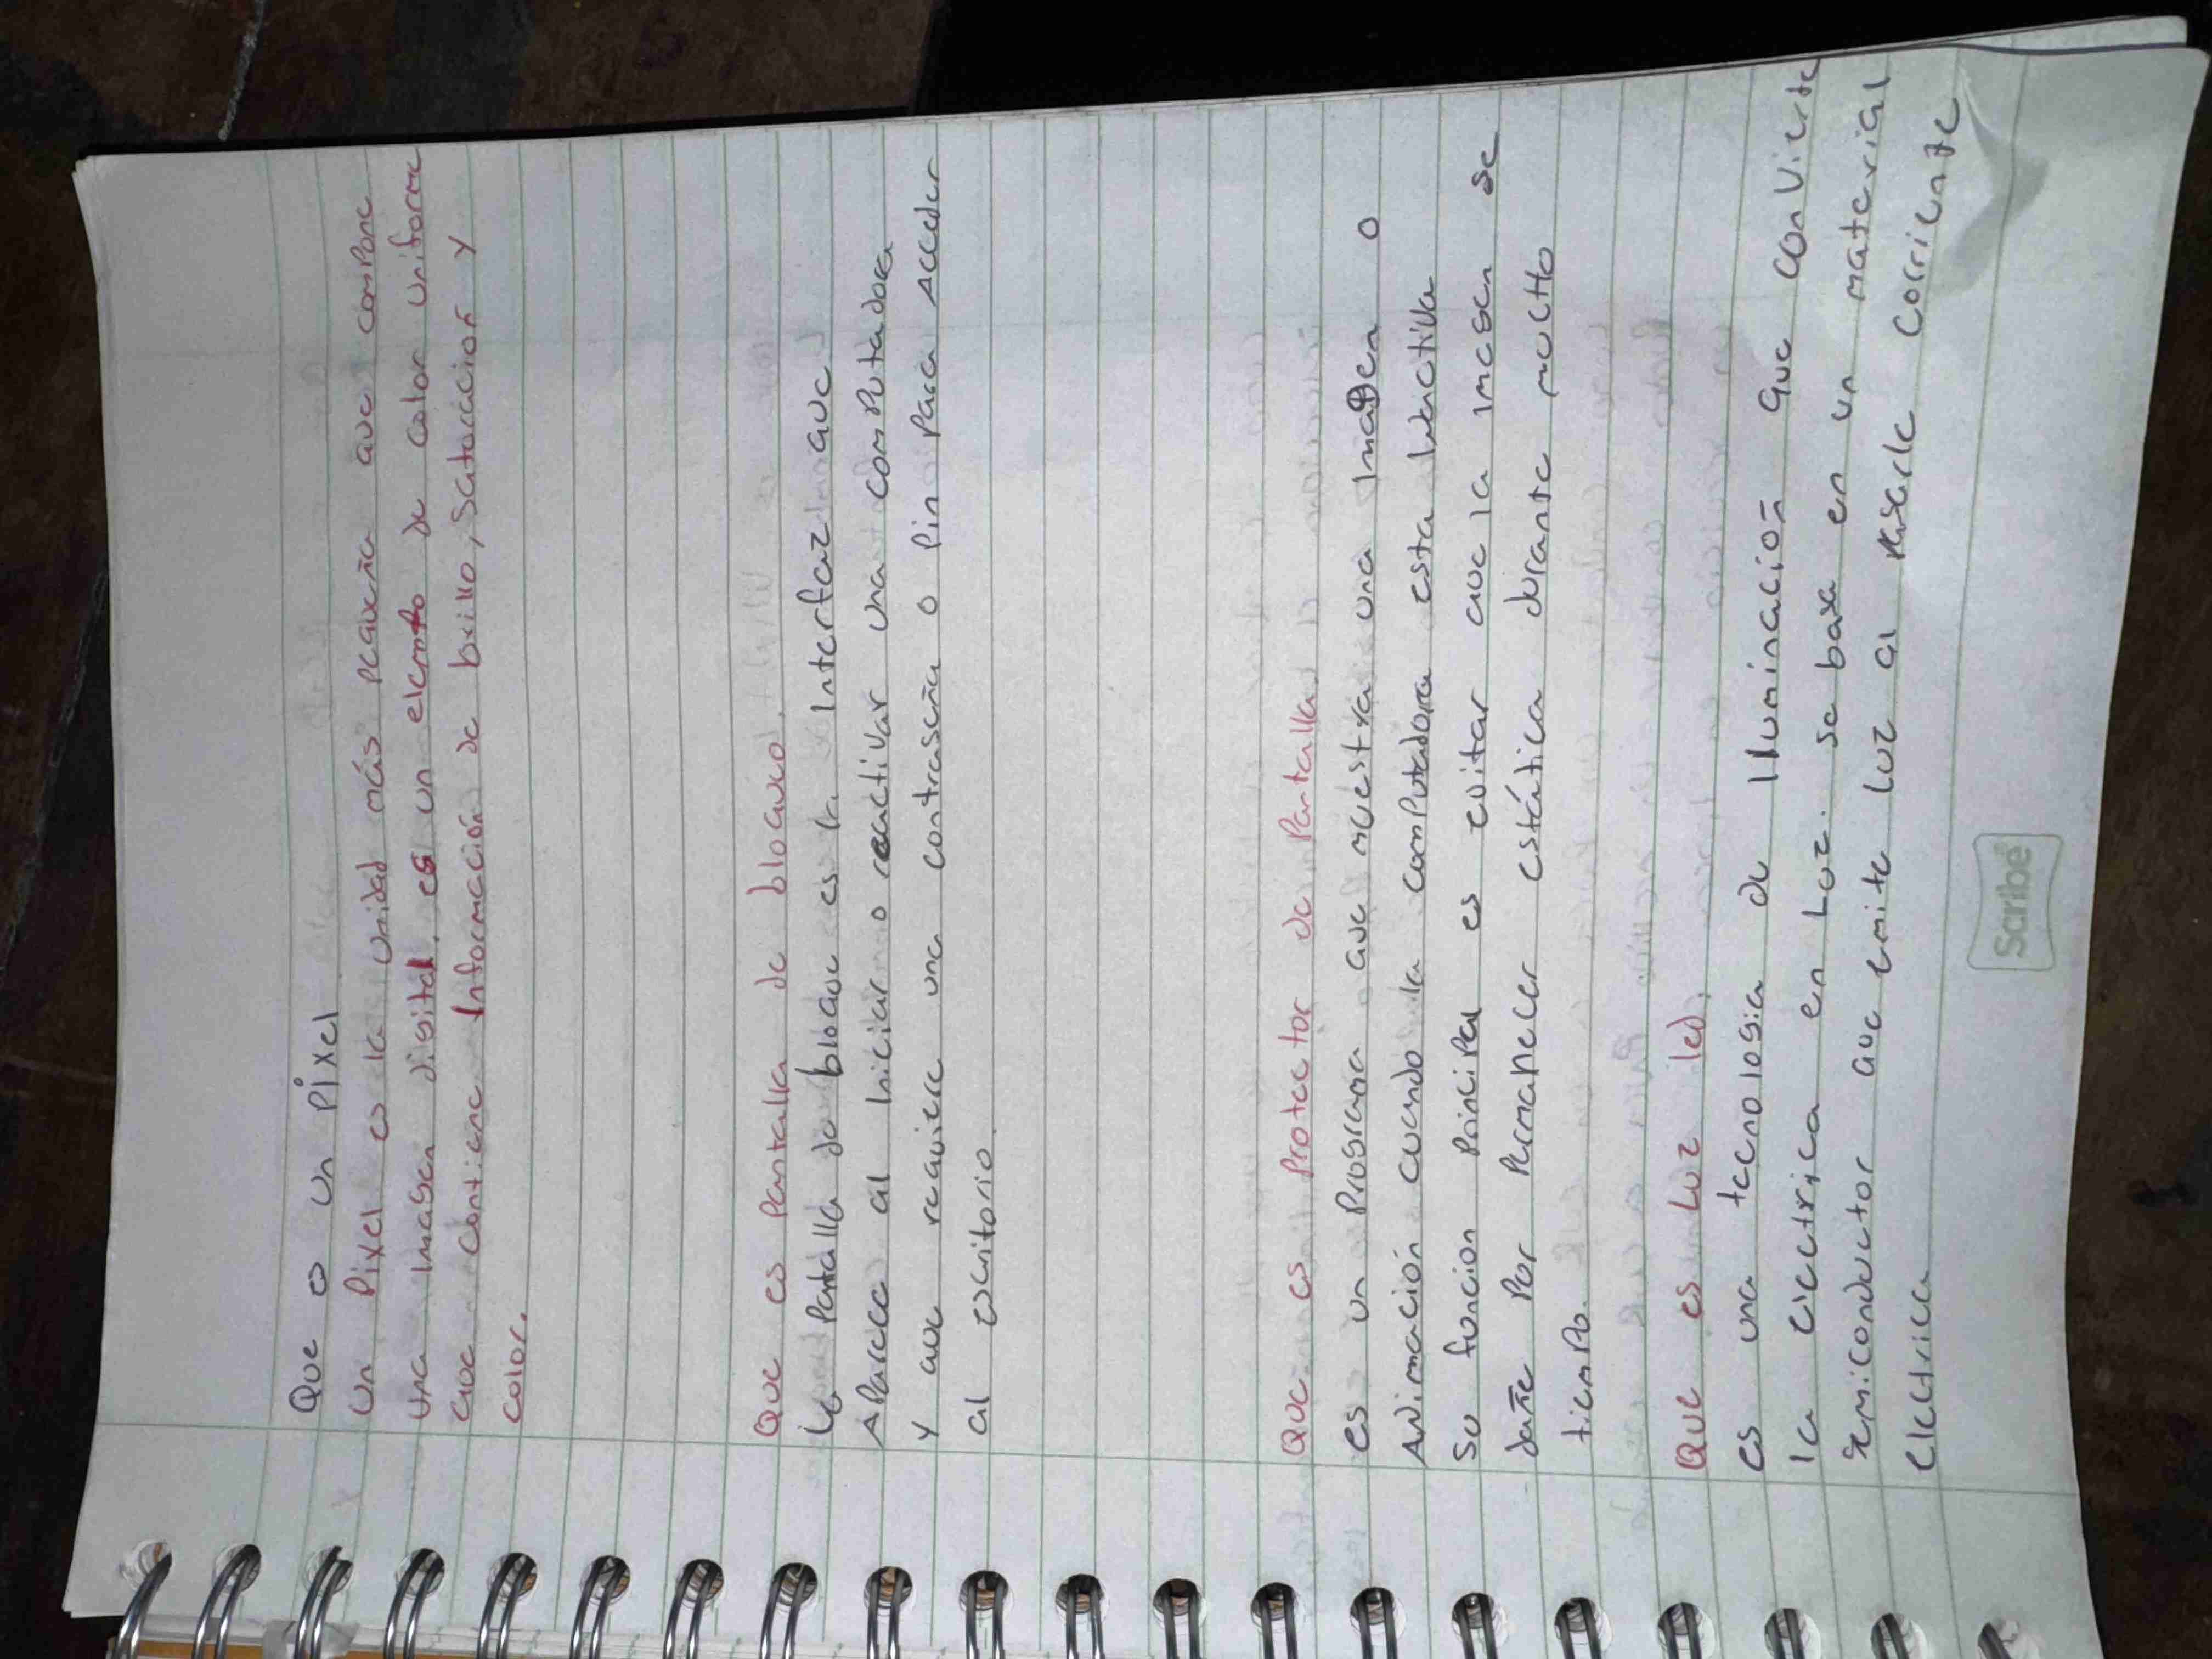 Que es un Pixel
Un Pixel es la unidad más pequeña que compone
una imagen digital. es un elemto de color uniforme
que contiene Información de brillo, Saturación y
color.
Que es pantalla de bloqueo.
La Pantalla de bloque es la Interfaz que
Aparece al Iniciar o reactivar una computadora
y que requiere una contraseña o Pin para Acceder
al escritorio.
Que es Protector de Pantalla.
es un Programa que muestra una Imagen o
Animación cuando la computadora esta Inactiva
Su funcion Principal es evitar que la imagen se
dañe Por Permanecer estática durante mucho
tiempo.
Que es Luz led.
es una tecnologia de Iluminación que convierte
la electrica en Luz. se basa en un material
semiconductor que emite luz al pasarle corriente
electrica
Scribe